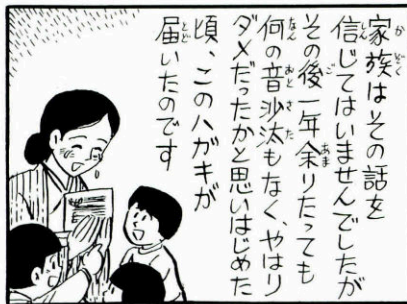 家族はその話を
信じてはいませんでしたが
その後一年余りたっても
何の音沙汰もなく、やはり
ダメだったかと思いはじめた
頃、このハガキが
届いたのです